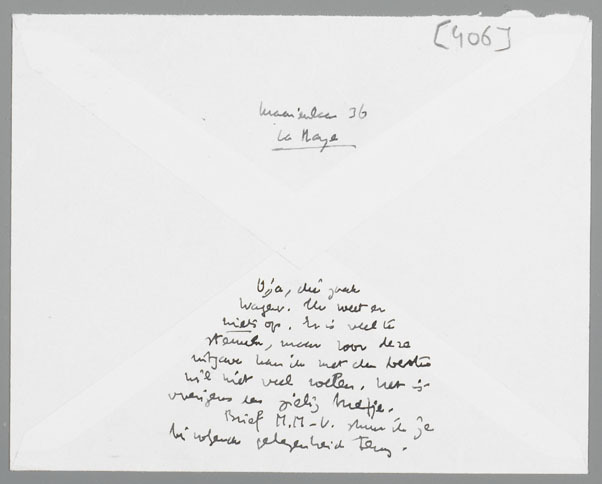 [406]
36
La Haye
O, ja, die zaak
Wagener. Ik weet er
niets op. Er is veel te
stemmen, maar voor deze
uitgave kan ik met den besten
wil niet veel voelen. Het is
overigens een zielig
Brief M.M-V. stuur ik je
bij volgende gelegenheid terug.